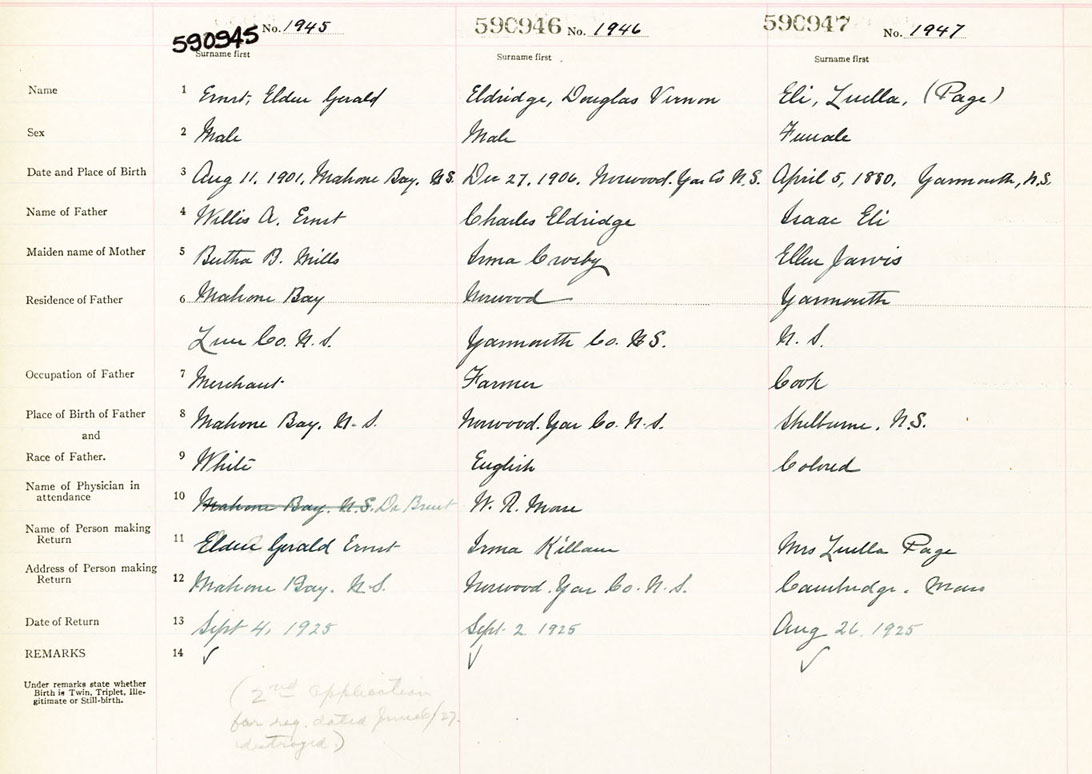 590945 No. 1945 590946 No. 1946 590947 No. 1947
Surname first Surname first Surname first
Name 1 Ernst, Elden Gerald Eldridge, Douglas Vernon Eli, Luella, (Page)
Sex 2 Male Male Female
Date and Place of Birth 3 Aug 11, 1901, Mahone Bay, N.S. Dec 27, 1906, Norwood. Yar Co N.S. April 5, 1880, Yarmouth, N.S.
Name of Father 4 Willis A. Ernst Charles Eldridge Isaac Eli
Maiden name of Mother 5 Bertha B. Mills Irma Crosby Ellen Jarvis
Residence of Father 6 Mahone Bay Norwood Yarmouth
Lun Co. N.S. Yarmouth Co. N.S. N.S.
Occupation of Father 7 Merchant Farmer Cook
Place of Birth of Father 8 Mahone Bay. N.S. Norwood. Yar Co. N.S. Shelburne. N.S.
and
Race of Father. 9 White English Colored
Name of Physician in
attendance 10 Mahone Bay. N.S. Dr W. R. Morse
Name of Person making
Return 11 Elden Gerald Ernst Irma Killam Mrs Luella Page
Address of Person making
Return 12 Mahone Bay. N.S. Norwood. Yar Co. N.S. Cambridge. Mass
Date of Return 13 Sept 4, 1925 Sept. 2 1925 Aug 26, 1925
REMARKS 14 ✓ ✓ ✓
Under remarks state whether
Birth is Twin, Triplet, Ille-
gitimate or Still-birth.
(2nd application
for reg. dated
destroyed)